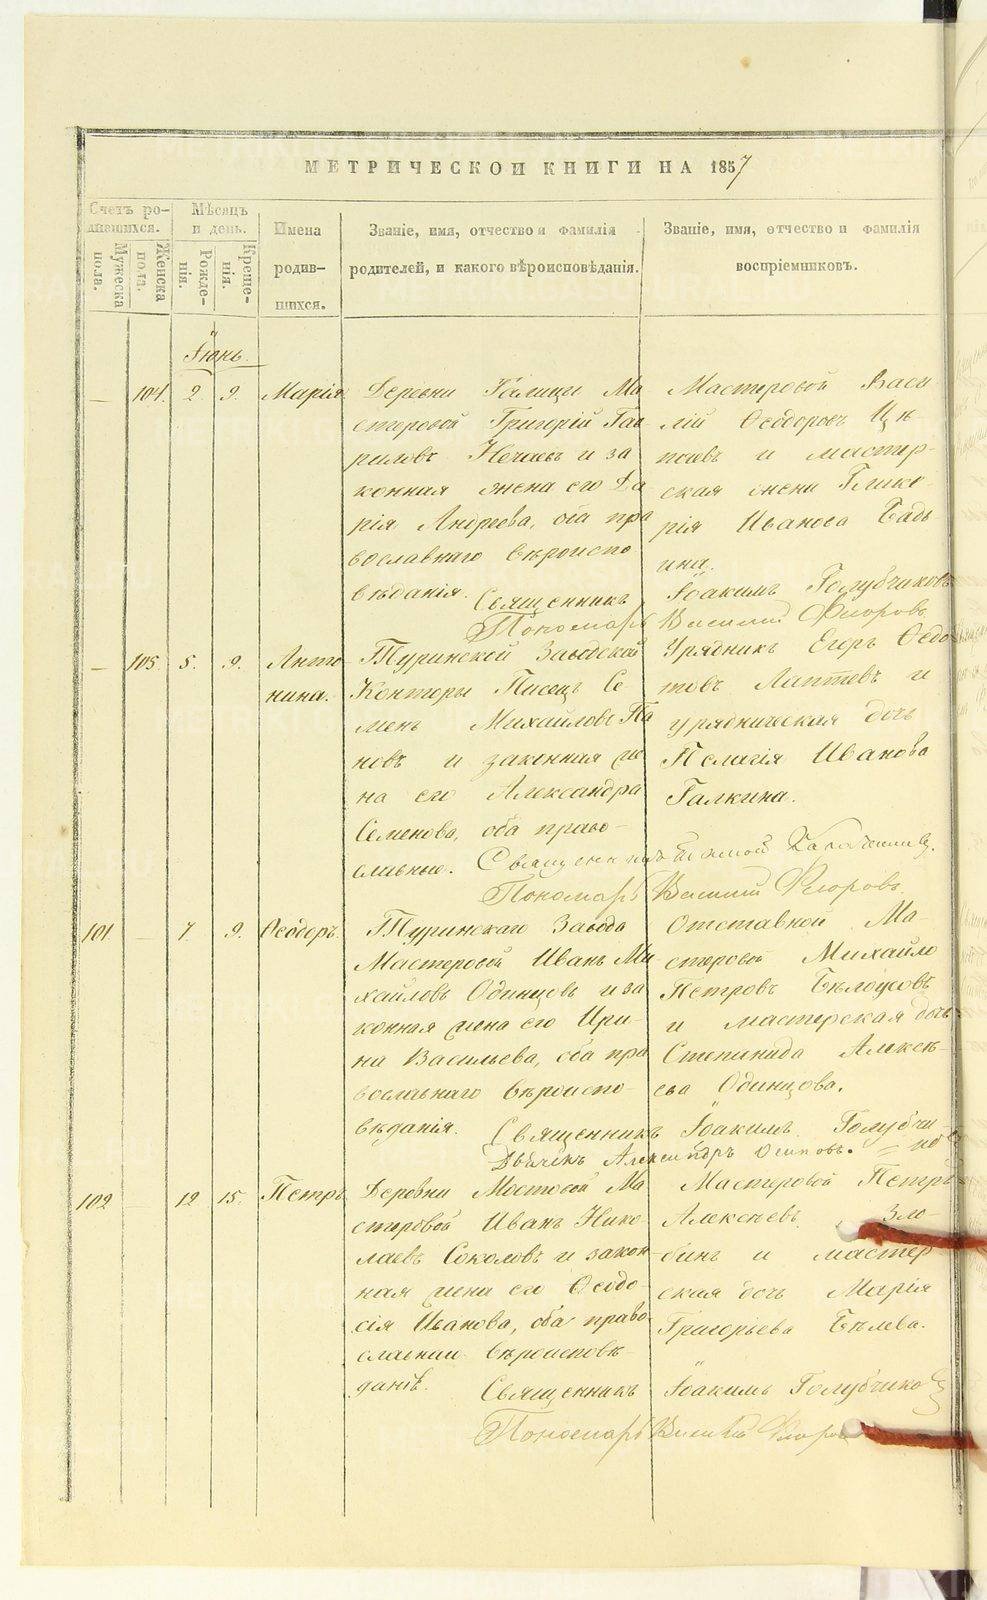 МЕТРИЧЕСКОЙ КНИГИ НА 1857
Счетъ родившихся.
Мужеска пола.
Женска пола.
Мѣсяцъ и день.
Рожденія.
Крещенія.
Имена родившихся.
Званіе, имя, отчество и фамилія
родителей, и какого вѣроисповѣданія.
Званіе, имя, отчество и фамилія
воспріемниковъ.
Іюнь.
— 104. 2 9. Марія
Деревни Ма
стеровой Григорій Гав
риловъ Нечаевъ и за
конная жена его Да
рія Андреева, оба пра
вославнаго вѣроиспо
вѣданія.
Мастеровой Васи
лій Ѳеодоровъ
и мастер-
ская жена Глике
рія Иванова
Священникъ Іоакимъ Голубчиковъ
Пономарь Василій Флоровъ
— 105. 5. 9. Анто
нина.
Туринской Заводской
Конторы Писецъ Се
менъ Михайловъ Па
новъ и законная же
на его Александра
Семенова, оба право-
славные.
Урядникъ Егоръ Ѳедо
товъ Лаптевъ и
урядническая дочь
Пелагія Иванова
Галкина.
Священникъ
Пономарь Василій Флоровъ.
101. — 7. 9. Ѳеодоръ.
Туринскаго Завода
Мастеровой Иванъ Ми
хайловъ Одинцовъ и за
конная жена его Ири-
на Васильева, оба пра
вославнаго вѣроиспо-
вѣданія.
Отставной Ма-
стеровой Михайло
Петровъ Бѣлоусовъ
и мастерская дочь
Степанида Алексѣ-
ева Одинцова.
Священникъ Іоакимъ Голубчи-
ковъ
Дьячекъ Александръ Осиповъ.
102 — 12 15. Петръ
Деревни Мостовой Ма
стеровой Иванъ Нико-
лаевъ Соколовъ и закон-
ная жена его Ѳеодо-
сія Иванова, оба право
славнаго вѣроисповѣ-
данія.
Мастеровой Петръ
Алексѣевъ Зло-
бинъ и мастер
ская дочь Марія
Григорьева Бѣлева.
Священникъ Іоакимъ Голубчиковъ
Пономарь Василій Флоровъ